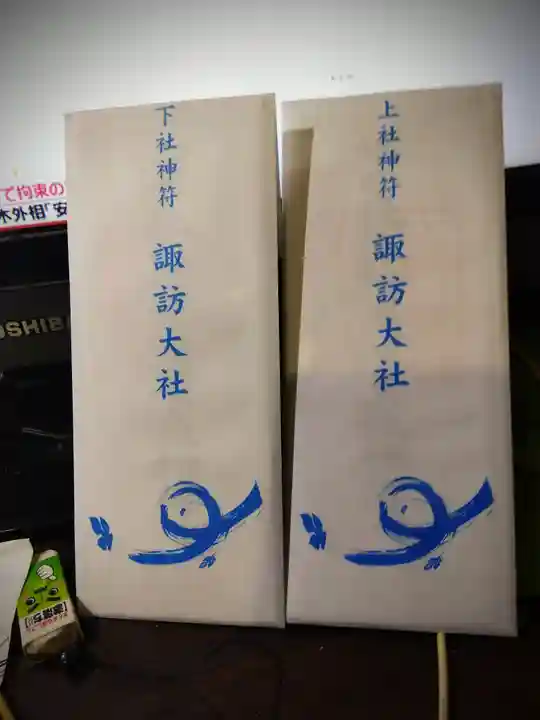 下社神符
諏訪大社
上社神符
諏訪大社
て拘束の
木外相「安
OSHIBA